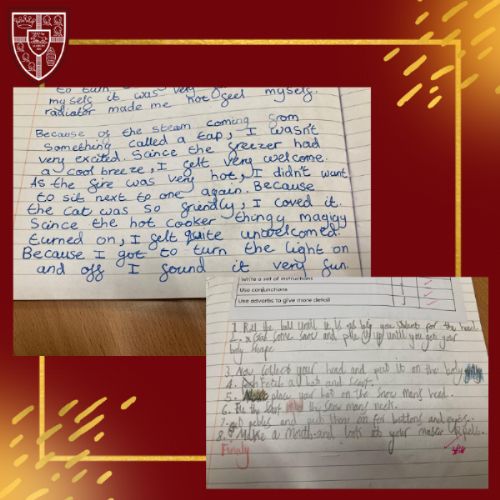 to turn
myself it was very hot I feel myself.
radiator made me
Because of the steam coming from
something called a tap, I wasn't
very excited. Scince the freezer had
a cool breeze, I felt very welcome.
As the fire was very hot, I didn't want
to sit next to one again. Because
the cat was so friendly, I loved it.
Scince the hot cooker thingy magigy
turned on, I felt quite unwelcomed.
Because I got to turn the light on
and off I found it very fun.
Write a set of instructions
Use conjunctions
Use adverbs to give more detail
1. Roll the ball until it is big for the head
2. some snow and pile it up until you get your
body shape
3. Now collect your head and put it on the body
4. Fetch a hat and scarf.
5. place your hat on the snow mans head.
6. the scarf the snow mans neck.
7. pebles and put them on for buttons and eyes.
8. Make a mouth and look at your
Finaly